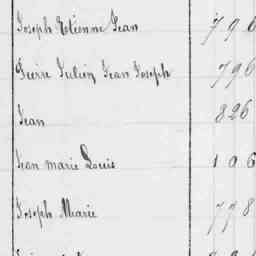 Joseph Etienne Jean 796
Pierre Julien Jean Joseph 796
Jean 826
Jean marie Louis 106
Joseph Marie 778